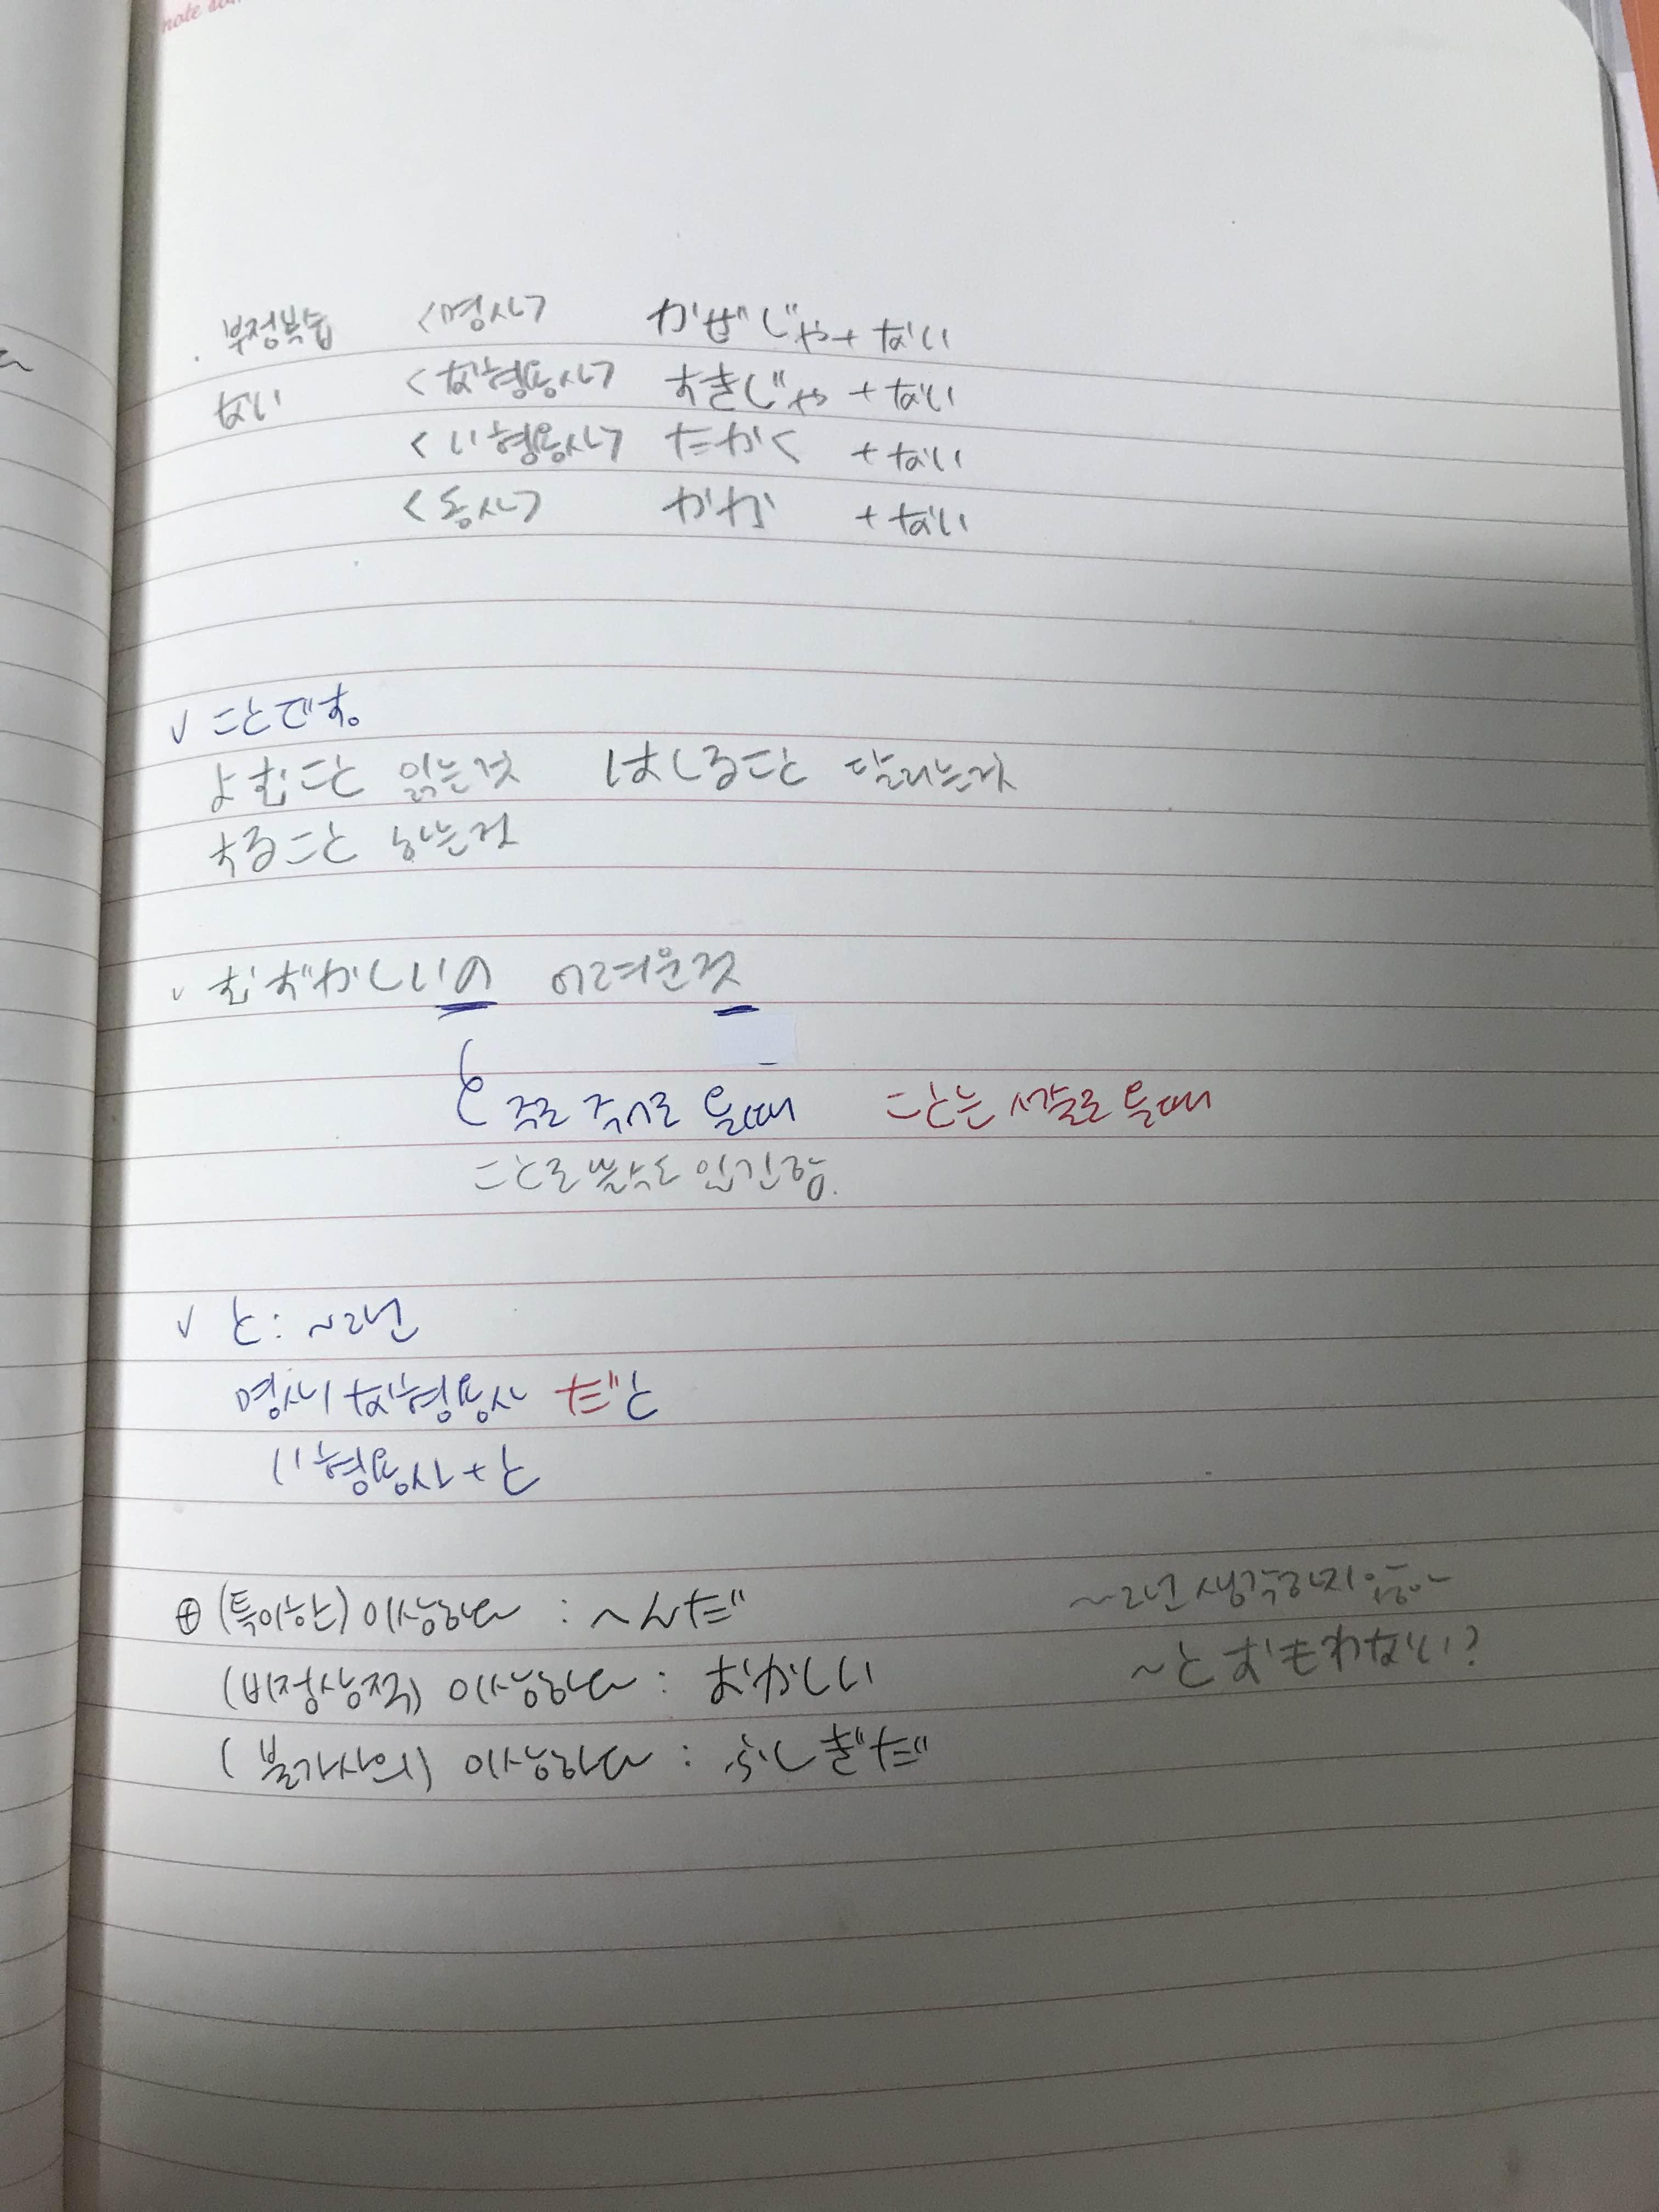 note
. 부정복습 <명사> かぜじゃ+ない
ない <な형용사> すきじゃ+ない
<い형용사> たかく +ない
<동사> かか +ない
✓ ことです。
よむこと 읽는것 はしること 달리는것
すること 하는것
✓ むずかしいの 어려운것
주로 주어로 올때 ことは 서술로 올때
ことろ 쓸수도 있긴함.
✓ と: ~라던
명사/な형용사 だと
い형용사+と
⊕ (특이한) 이상하다 : へんだ ~라던 생각하지
(비정상적) 이상하다 : おかしい ~とおもわない?
(불가사의) 이상하다 : ふしぎだ